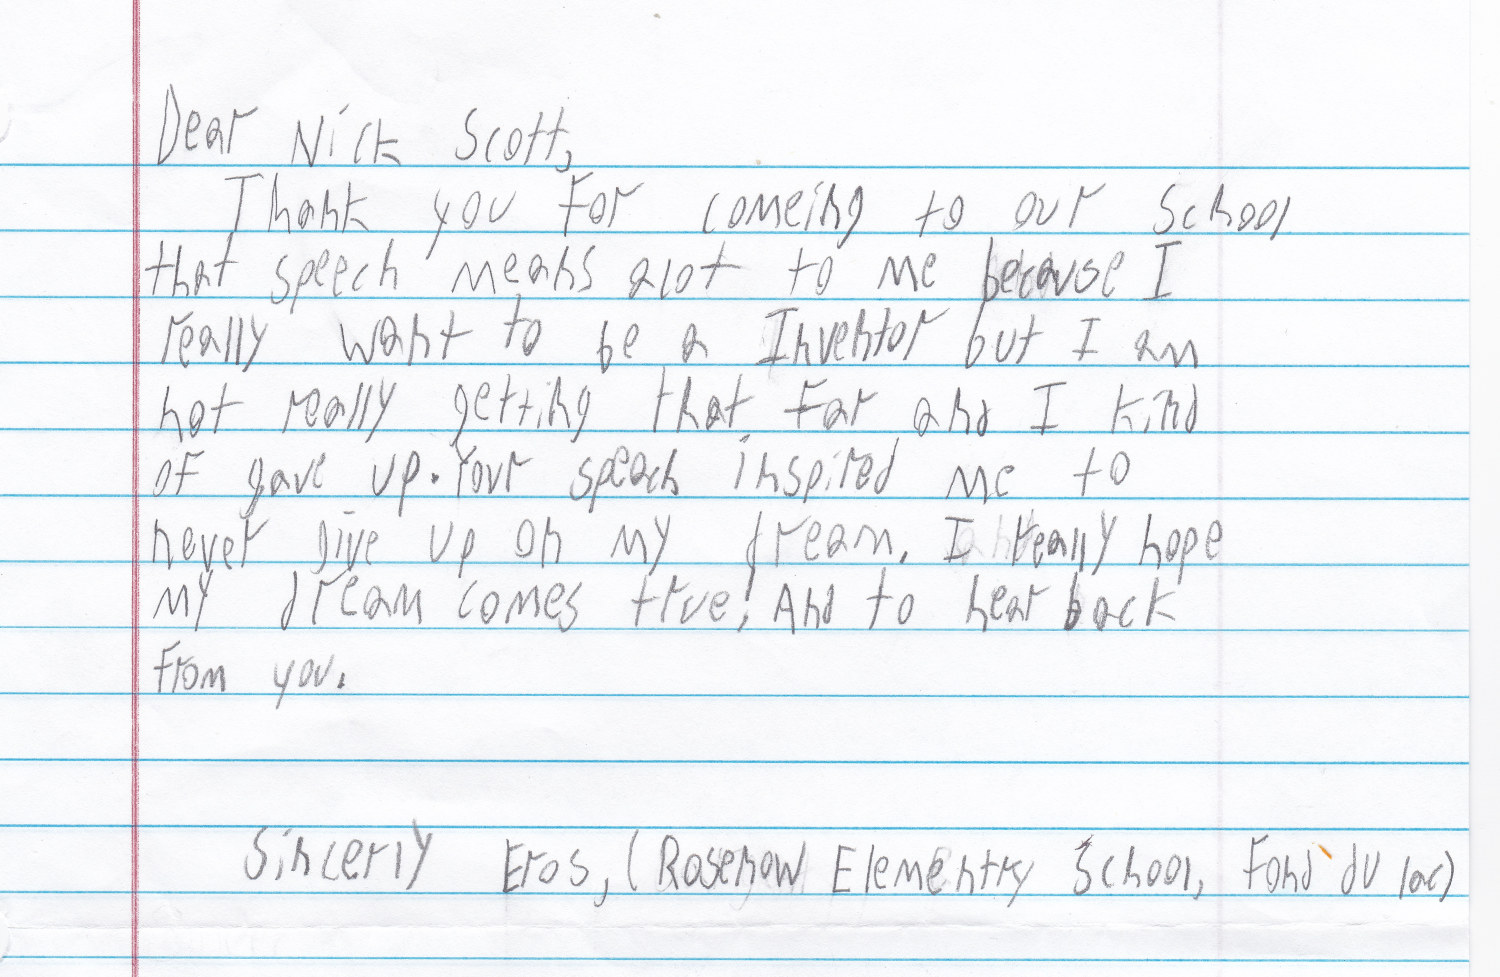 Dear Nick Scott,
Thank you For comeing to our School
that speech means alot to me because I
really want to be a Inventor but I am
not really getting that Far and I kind
of gave up. Your speach inspired me to
never give up on my dream. I really hope
my dream comes true! And to hear back
From you.
Sincerly Eros, (Rosenow Elementry School, Fond du lac)